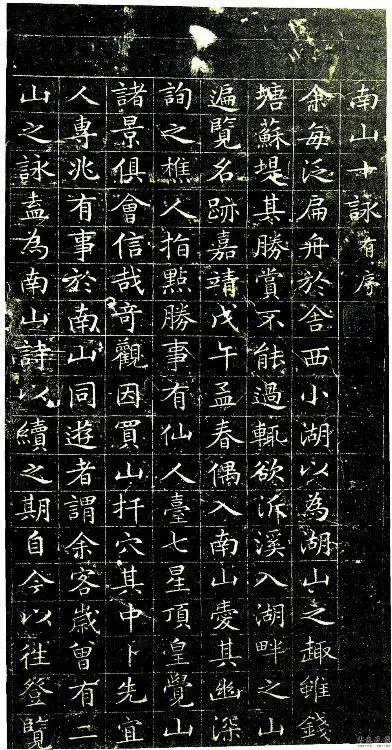 南山十詠有序
余每泛扁舟於舍西小湖以為湖山之趣雖錢
塘蘇堤其勝賞不能過輒欲泝溪入湖畔之山
遍覽名跡嘉靖戊午孟春偶入南山愛其幽深
詢之樵人指點勝事有仙人臺七星頂皇覺山
諸景俱會信哉奇觀因買山扞穴其中卜先宜
人專兆有事於南山同遊者謂余客歲曾有二
山之詠盍為南山詩以續之期自今以往登覽